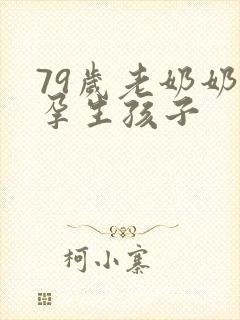 79歲老奶奶
孕生孩子
柯小寨